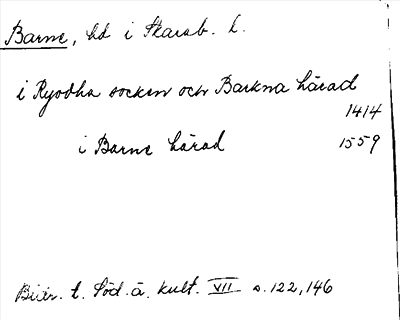 Barne, hd i Skarab. l.
i Ryodha socken och Barkna härad
1414
i Barne härad 1559
Bidr. t. Söd. ä. kult. VII s. 122, 146